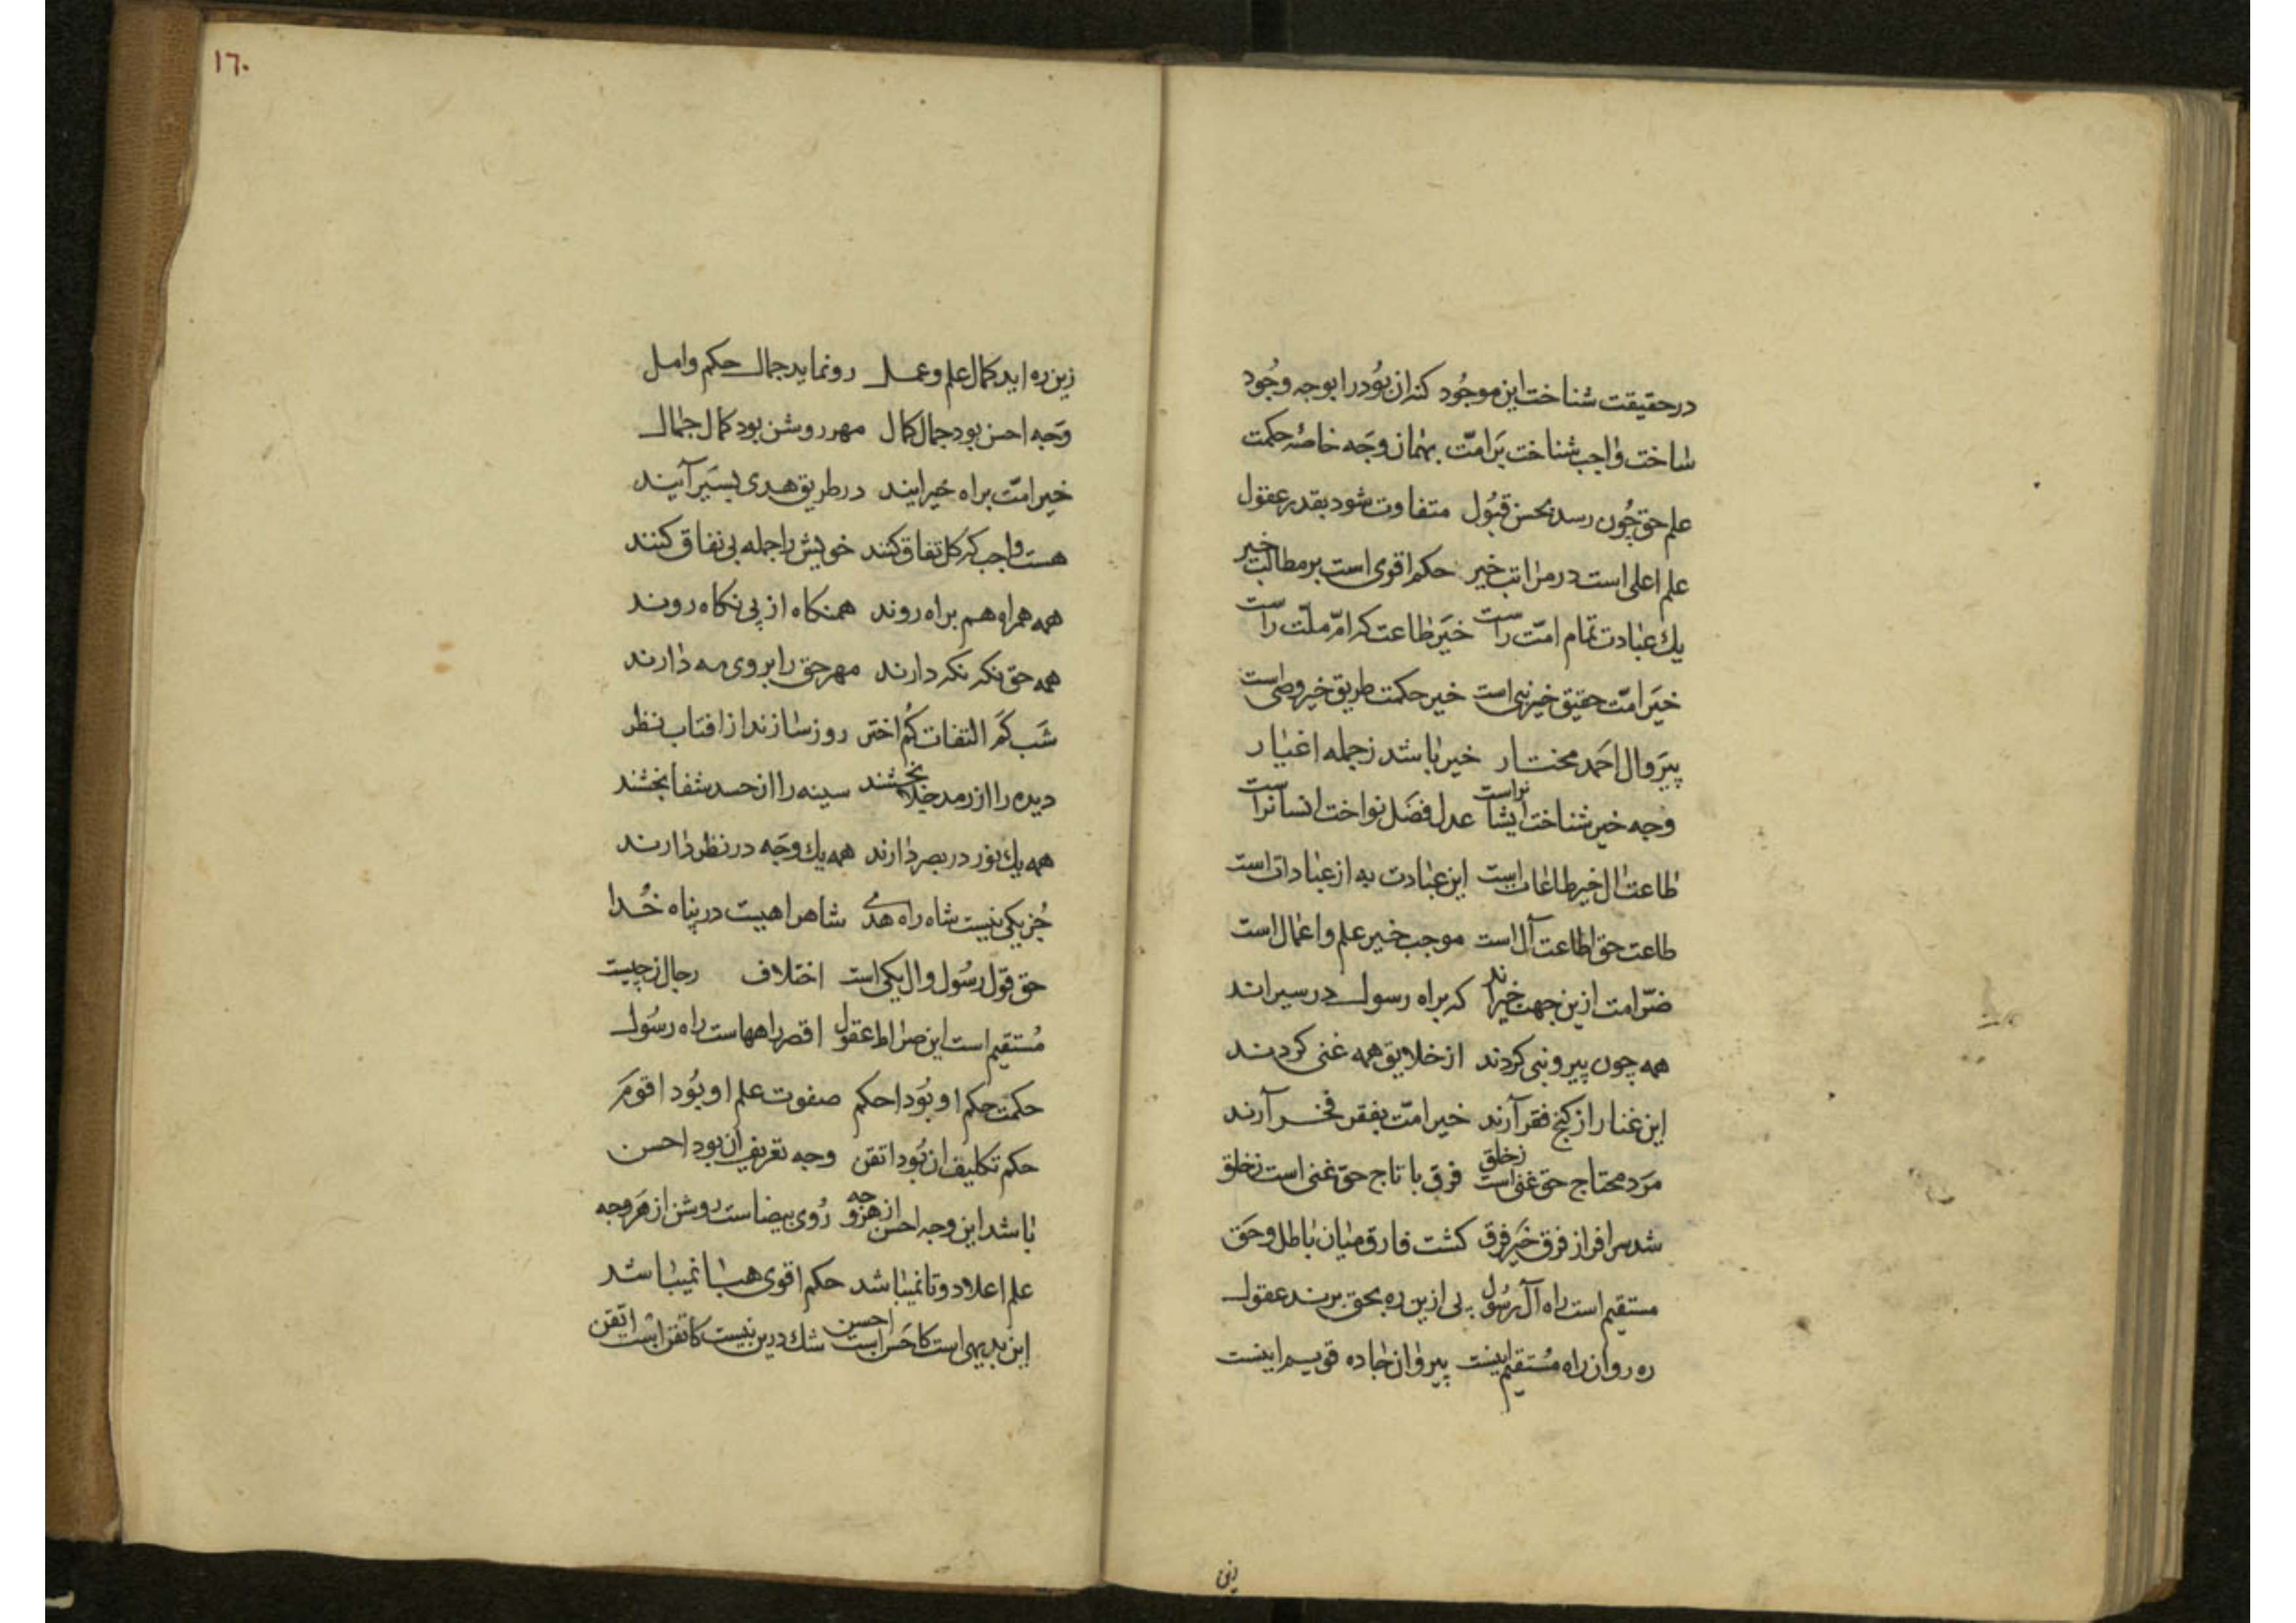 در حقیقت شناخت این موجود کنه ان بود را بوجه وجود
ساخت واجب شناخت بر امت بهمان وجه خاصه حکمت
علم حق چون رسد بحسن قبول متفاوت شود بقدر عقول
علم اعلی است در مراتب خیر حکم اقوی است بر مطالب خیر
یك عبادت تمام امت راست خیر طاعت که امر ملت راست
خیر امت حقیق خیر نبی است خیر حکمت طریق خیر وصی است
پیر وال احمد مختار خیر باشد ز جمله اغیار
وجه خیر شناخت ایشانراست عدل فضل نواخت انسانراست
طاعت ال خیر طاعات است این عبادت به از عبادات است
طاعت حق اطاعت آل است موجب خیر علم و اعمال است
امت ازین جهت خیراند که براه رسول در سیراند
همه چون پیرو نبی کردند از خلایق همه غنی کردند
این غنا را ز کنج فقر آرند خیر امت بفقر فخر آرند
مرد محتاج حق غنی است ز خلق فرق با تاج حق غنی است ز خلق
شد سرافراز فرق خیر فرق کشت فارق میان باطل و حق
مستقیم است راه آل رسول پی ازین ره بحق برند عقول
ره روان راه مستقیم اینست پیروان جاده قویم اینست
زین
١٦٠
زین ره اید کمال علم و عمل رو نماید جمال حکم و امل
وجه احسن بود جمال کمال مهر روشن بود کمال جمال
خیر امت براه خیر ایند در طریق هدی بسیر آیند
هست واجب که کل تفاق کنند خویش را جمله بی نفاق کنند
همه همراه هم براه روند همنکاه از پی نکاه روند
همه حق نکر نکه دارند مهر حق را بروی مه دارند
شب کم التفات کم اختر روز سازند از افتاب نظر
دیده را از رمد جلا بخشند سینه را از حسد شفا بخشند
همه یك نور در بصر دارند همه یك وجه در نظر دارند
جز یکی نیست شاه راه هدی شاهراهیست در پناه خدا
حق قول رسول و ال یکی است اختلاف رجال ز چیست
مستقیم است این صراط عقول اقصر راههاست راه رسول
حکمت حکم او بود احکم صفوت علم او بود اقوم
حکم تکلیف ان بود اتقن وجه تعریف ان بود احسن
باشد این وجه احسن از هر وجه روی بیضاست روشن از هر وجه
علم اعلا دوتا نمیباشد حکم اقوی هبا نمیباشد
این بدیهی است کاحسن است احسن شك درین نیست کاتقن است اتقن